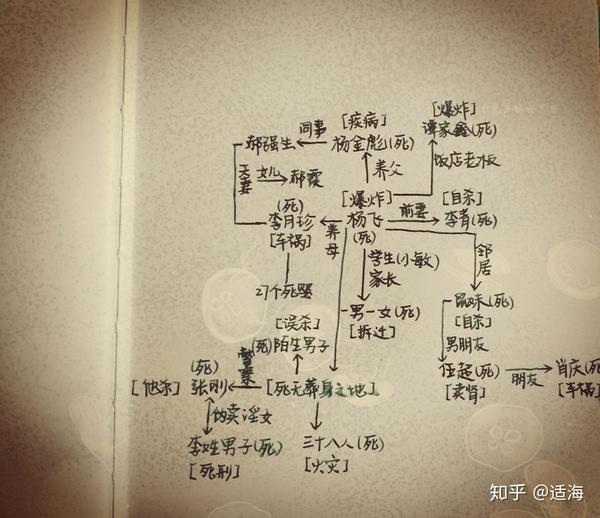 [爆炸]
同事 [疾病] 谭家鑫(死)
郝强生 杨金彪(死)
养父 饭店老板
夫妻 女儿 郝霞
(死) [爆炸] 前妻 [自杀]
李月珍 养母 杨飞 李青(死)
[车祸] (死)
学生(小敏) 邻居
家长
27个死婴
一男一女(死) 鼠妹(死)
[误杀] [拆迁] [自杀]
(死)陌生男子 男朋友
(死) 警察 伍超(死) 朋友 肖庆(死
[他杀] 张刚 [死无葬身之地] [卖肾] [车祸]
伪卖淫女
李姓男子(死) 三十八人(死)
[死刑] [火灾]
知乎 @适海